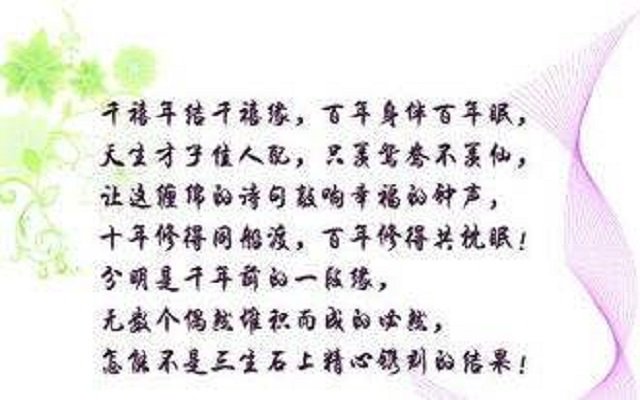 千禧年结千禧缘，百年身伴百年眠，
天生才子佳人配，只羡鸳鸯不羡仙，
让这缠绵的诗句敲响幸福的钟声，
十年修得同船渡，百年修得共枕眠！
分明是千年前的一段缘，
无数个偶然堆积而成的必然，
怎能不是三生石上精心镌刻的结果！